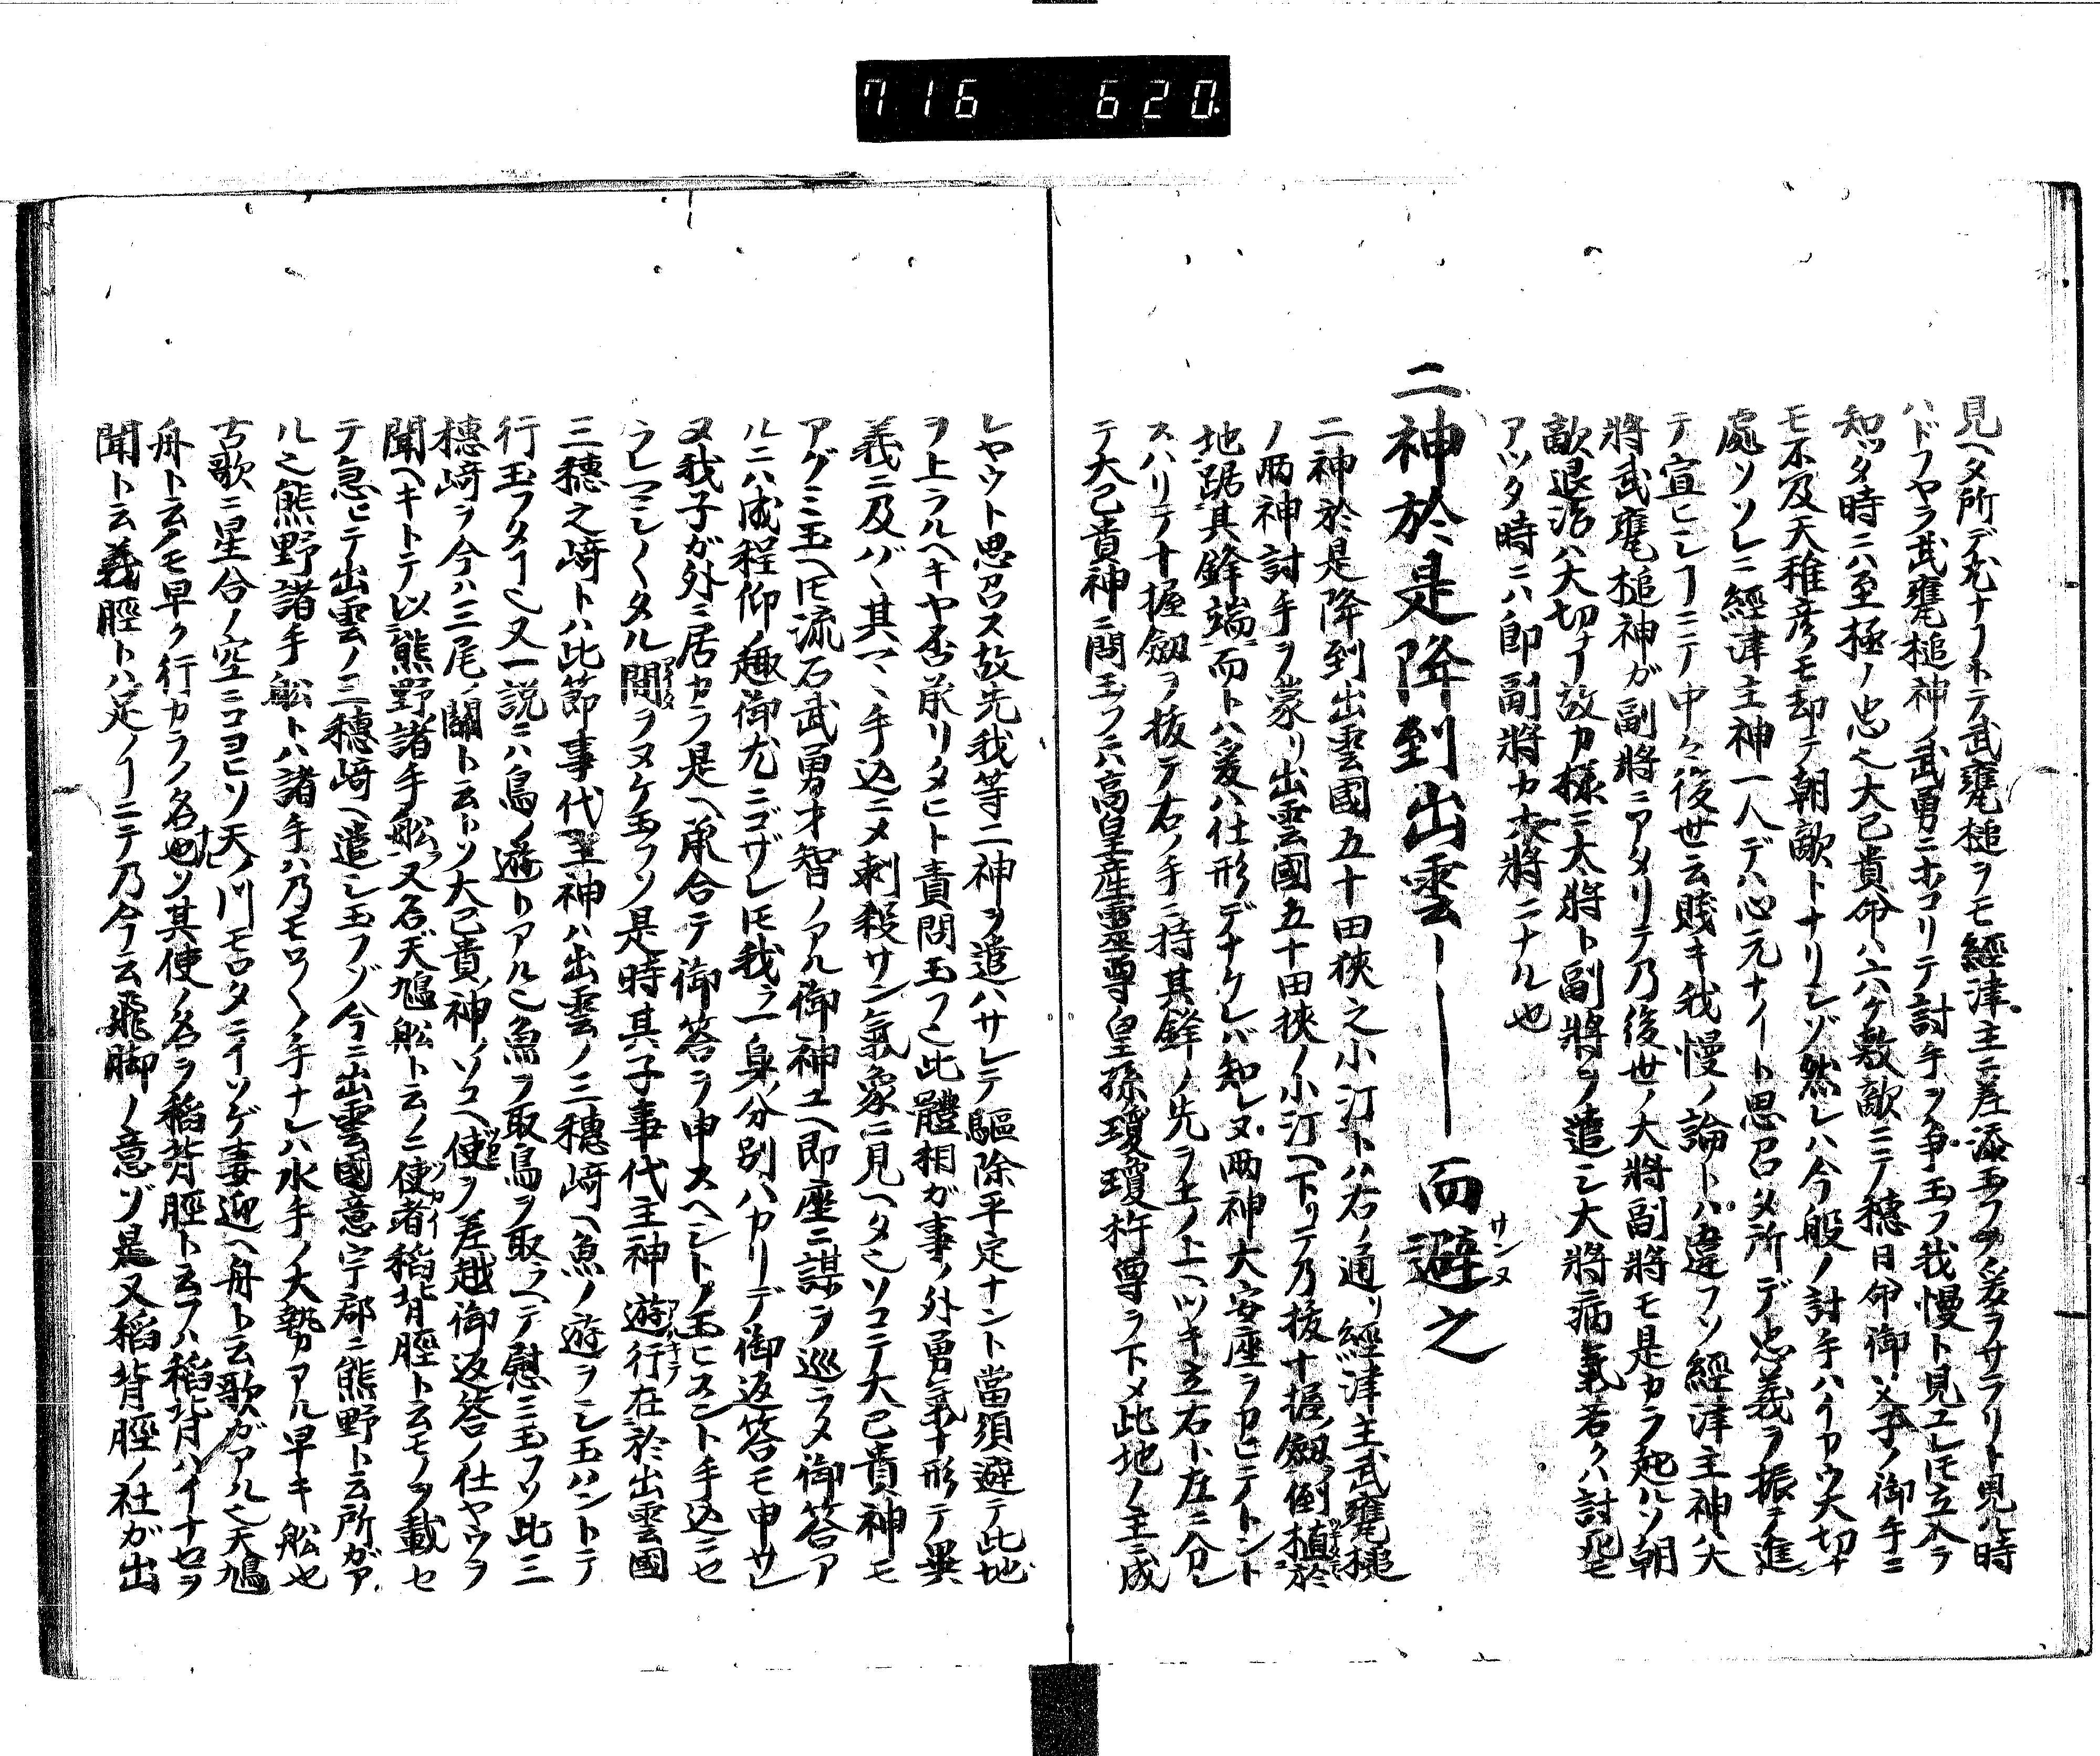 716 620
見ヘタ所デ尤ナコトテ武甕槌ヲモ經津主ニ差添玉フヲ爰ヲサラリト見ル時
ハドフヤラ武甕槌神ノ武勇ニホコリテ討手ヲ争玉フ我慢ト見ユレ𪜈立入ラ
知ツタ時ニハ至極ノ忠也大己貴命ハ六ケ敷敵ニテ穗日命御父子ノ御手ニ
モ不及天稚彦モ却テ朝敵トナリシゾ然レハ今般ノ討手ハイカウ大切ナ
處ソソレニ經津主神一人デハ心元ナイト思召タ所デ忠義ヲ振テ進
テ宣ヒシコニテ中々後世云賤キ我慢ノ論トハ違フソ經津主神ハ大
將武甕槌神ガ副將ニアタリテ乃後世ノ大將副將モ是カラ起ルソ朝
敵退治ハ大切ナコ故カ樣ニ大將ト副將ヲ遣シ大將病氣若クハ討死モ
アツタ時ニハ即副將カ大將ニナル也
二神於是降到出雲ー而避之 サンヌ
二神於是降到出雲國五十田狹之小汀トハ右ノ通リ經津主武甕槌
ノ兩神討手ヲ蒙リ出雲國五十田挾ノ小汀ヘ下リテ乃拔十握劔倒植於
地踞其鋒端而トハ爰ハ仕形デナケレバ知レヌ兩神大安座ヲカヒテトント
スハリテ十握劔ヲ拔テ右ノ手ニ持其鋒ノ先ヲ土ノ上ヘツキ立右ト左ニ分レ
テ大己貴神ニ問玉フニ高皇産靈尊皇孫瓊瓊杵尊ヲ下メ此地ノ主ニ成
レヤウト思召ス故先我等二神ヲ遣ハサレテ驅除平定ナント當須避テ此地
ヲ上ラルヘキヤ否承リタヒト責問玉フ也此體相ガ事ノ外勇氣ナ形テ異
義ニ及バ其マヽ手込ニメ刺殺サン氣象ニ見ヘタ也ソコニテ大己貴神モ
アグミ玉ヘ𪜈流石武勇才智ノアル御神ユヘ即座ニ謀ヲ巡ラメ御答ア
ルニハ成程仰ノ趣御尤ニゴザレ𪜈我ラ一身ノ分別ハカリデ御返答モ申サレ
ヌ我子ガ外ニ居カラ是ヘ承合テ御答ヲ申スヘシトノ玉ヒスント手込ニセ
ラレマシクタル間ヲヌケ玉フソ是時其子事代主神遊行在於出雲國
三穗之﨑トハ此節事代主神ハ出雲ノ三穗﨑ヘ魚ノ遊ヲシ玉ハントテ
行玉フタコ也又一説ニハ鳥ノ遊トアル也魚ヲ取鳥ヲ取ラヘテ慰ミ玉フソ此三
穗﨑ヲ今ハ三尾ノ關ト云トソ大己貴神ノソコヘ使ヲ差越御返答ノ仕ヤウヲ
聞ヘキトテ以熊野諸手舩又名天鳩舩ト云ノニ使者稻背脛ト云モノヲ載セ
テ急ヒテ出雲ノ三穗﨑ヘ遣シ玉フゾ今ニ出雲國意宇郡ニ熊野ト云所ガア
ル也熊野諸手舩トハ諸手ハ乃モロ〳〵手ナレハ水手ノ大勢カアル早キ舩也
古歌ニ星合ノ空ニコヨヒソ天ノ川モロタニイソゲ妻迎ヘ舟ト云歌ガアル也天鳩
舟ト云タモ早ク行カラノ名也ソ其使ノ名ヲ稻背脛ト云フハ稻背ハイナセヲ
聞ト云義脛トハ足ノコニテ乃今云飛脚ノ意ゾ是又稻背脛ノ社ガ出